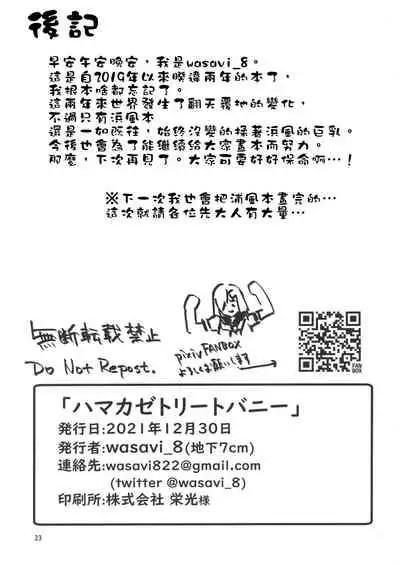 後記
早安午安晚安，我是wasavi_8。
這是自2019年以來睽違兩年的本了，
我根本啥都忘記了。
這兩年來世界發生了翻天覆地的變化，
不過只有浜風本
還是一如既往，始終沒變的揉著浜風的巨乳。
今後也會為了能繼續給大家畫本而努力。
那麼，下次再見了。大家可要好好保命啊…！
※下一次我也會把浦風本畫完的…
這次就請各位先大人有大量…
無断転載禁止
Do Not Repost.
pixivFANBOX
よろしくお願いします
FAN
BOX
「ハマカゼトリートバニー」
発行日:2021年12月30日
発行者:wasavi_8(地下7cm)
連絡先:wasavi822@gmail.com
(twitter @wasavi_8)
印刷所:株式会社 栄光様
23